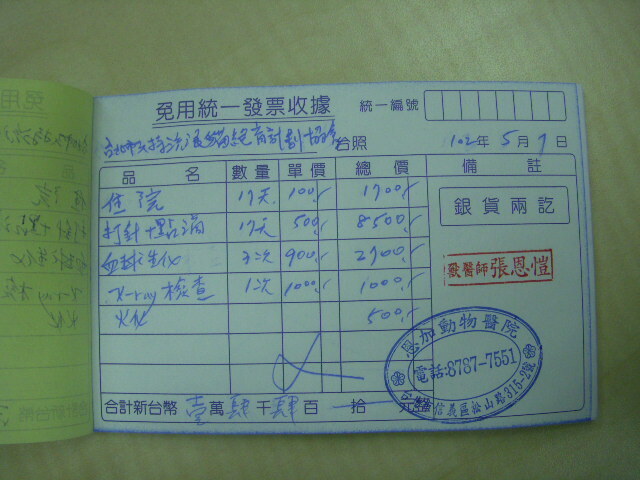 免用統一發票收據 統一編號
台北市支持流浪貓絕育計劃協會 台照 102年5月7日
品名 數量 單價 總價 備註
住院 17天 100 1700
打針+點滴 17天 500 8500
血球生化 3次 900 2700
X-ray檢查 1次 1000 1000
火化 500
銀貨兩訖
獸醫師 張恩愷
恩加動物醫院
電話:8787-7551
信義區松山路315-2號
合計新台幣 壹萬肆千肆百 拾 元整